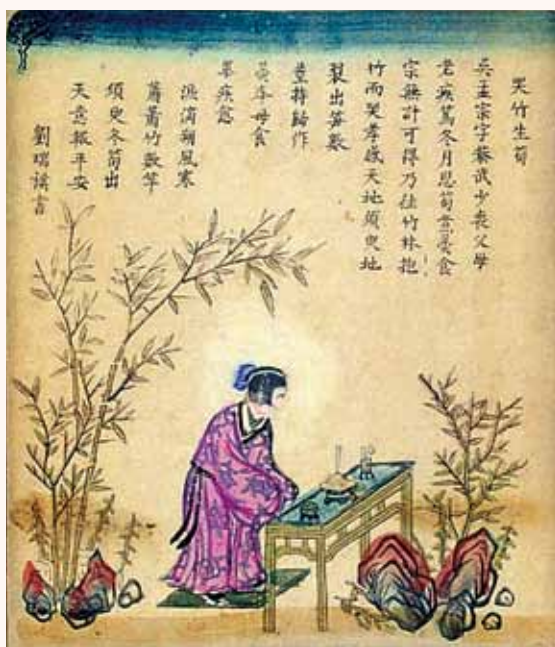 哭竹生筍
吳孟宗字恭武少喪父母
老疾篤冬月思筍煮羹食
宗無計可得乃往竹林抱
竹而哭孝感天地須臾地
裂出筍數
莖持歸作
羹奉母食
畢疾愈
淚滴朔風寒
蕭蕭竹數竿
須臾冬筍出
天意報平安
劉瑞書